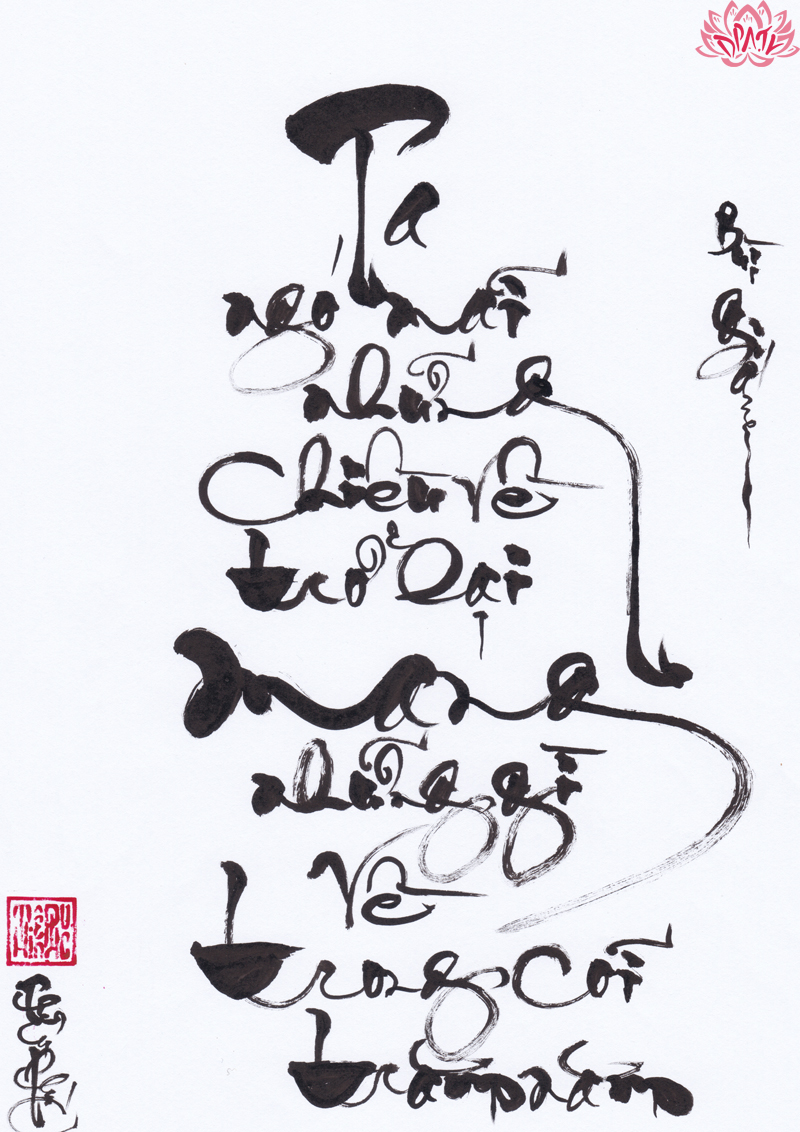 Ta
ngó mãi
những
Chiều về
trở Dại
mang
những gì
về
trong cõi
trăm năm
Bùi
Giáng